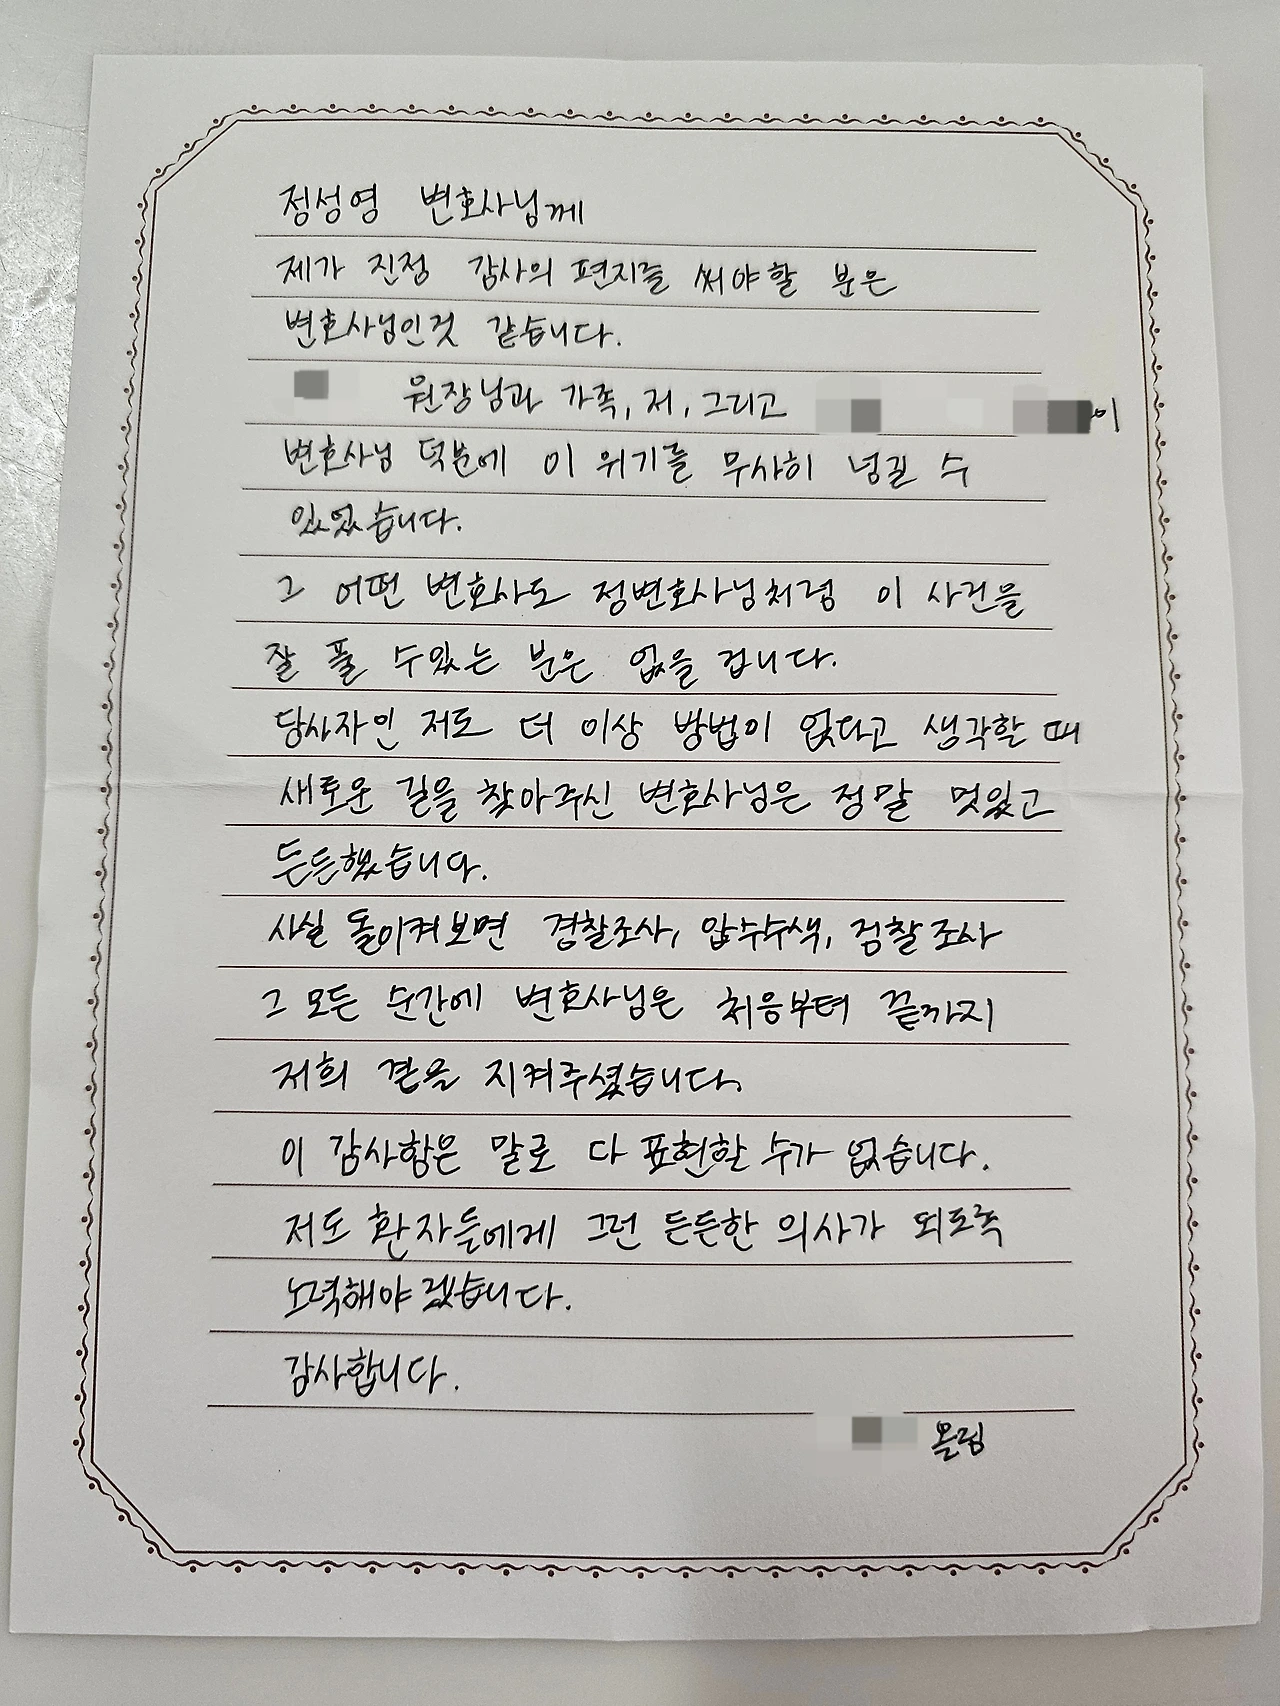 정성영 변호사님께
제가 진정 감사의 편지를 써야할 분은
변호사님인것 같습니다.
원장님과 가족, 저, 그리고 이
변호사님 덕분에 이 위기를 무사히 넘길 수
있었습니다.
그 어떤 변호사도 정변호사님처럼 이 사건을
잘 풀 수있는 분은 없을 겁니다.
당사자인 저도 더 이상 방법이 없다고 생각할 때
새로운 길을 찾아주신 변호사님은 정말 멋있고
든든했습니다.
사실 돌이켜보면 경찰조사, 압수수색, 검찰조사
그 모든 순간에 변호사님은 처음부터 끝까지
저희 곁을 지켜주셨습니다.
이 감사함은 말로 다 표현할 수가 없습니다.
저도 환자들에게 그런 든든한 의사가 되도록
노력해야겠습니다.
감사합니다.
올림